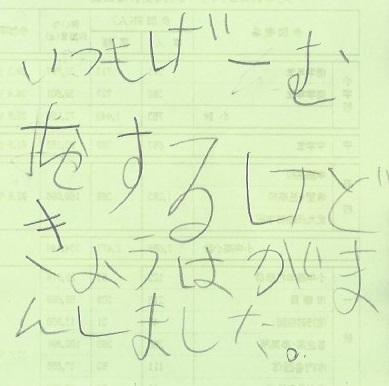 いつもげーむ
をするけど
きょうはがま
んしました。